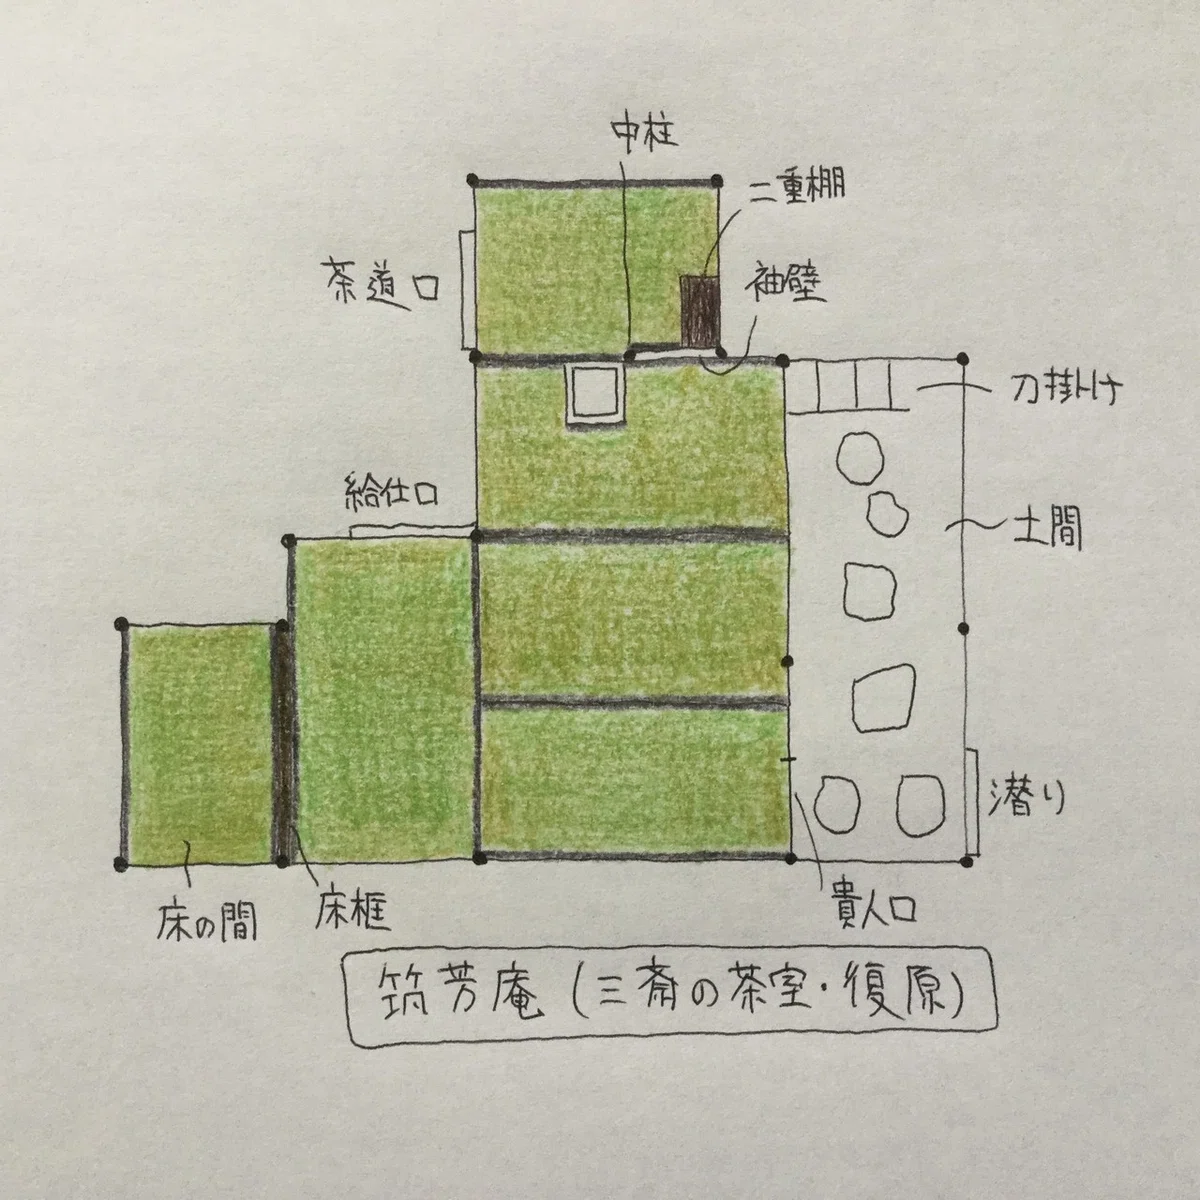 中柱
二重棚
茶道口
袖壁
刀掛け
給仕口
土間
潜り
床の間
床框
貴人口
筑芳庵(三斎の茶室・復原)